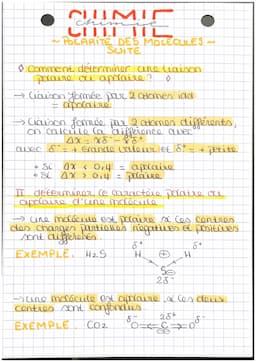 CHIMIE
chimie
~ POLARITÉ DES MOLÉCULES ~
SUITE
◊ Comment déterminer une liaison
polaire ou apolaire ? ◊
→ Liaison formée par 2 atomes id
= apolaire
→ Liaison formée par 2 atomes différents,
on calcule la différence avec
avec δ⁻ = + grande valeur et δ⁺ = + petite
+ Si Δx < 0,4 = apolaire
+ Si Δx > 0,4 = polaire
II déterminer le caractère polaire ou
apolaire d'une molécule
→ une molécule est polaire si les centres
des charges partielles négatives et positives
sont différentes.
EXEMPLE. H2S
δ⁺ δ⁺
H H
S
2δ⁻
→ une molécule est apolaire si les deux
centres sont confondus
EXEMPLE CO2 δ⁻ O = C = O δ⁻
2δ⁺